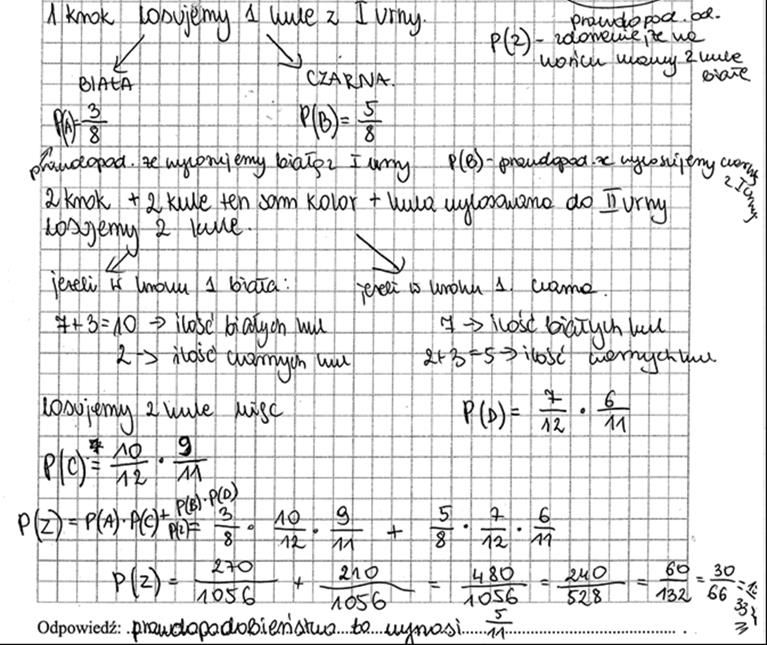 1 krok losujemy 1 kule z I urny.
P(Z) - prawdopod. od.
zdarzenie, że na
końcu mamy 2 kule
białe
BIAŁA CZARNA.
P(A)= 3/8 P(B) = 5/8
prawdopod. że wylosujemy białą z I urny P(B) - prawdopod. że wylosujemy czarną
z I urny
2 krok + 2 kule ten sam kolor + kula wylosowana do II urny
losujemy 2 kule.
jeżeli w kroku 1 biała: jeżeli w kroku 1. czarna.
7+3=10 → ilość białych kul 7 → ilość białych kul
2 → ilość czarnych kul 2+3=5 → ilość czarnych kul
losujemy 2 kule więc P(D) = 7/12 · 6/11
P(C) = 10/12 · 9/11
P(Z) = P(A)·P(C) + P(B)·P(D)
P(Z)= 3/8 · 10/12 · 9/11 + 5/8 · 7/12 · 6/11
P(Z) = 270/1056 + 210/1056 = 480/1056 = 240/528 = 60/132 = 30/66 =
Odpowiedź: prawdopodobieństwo to wynosi 5/11